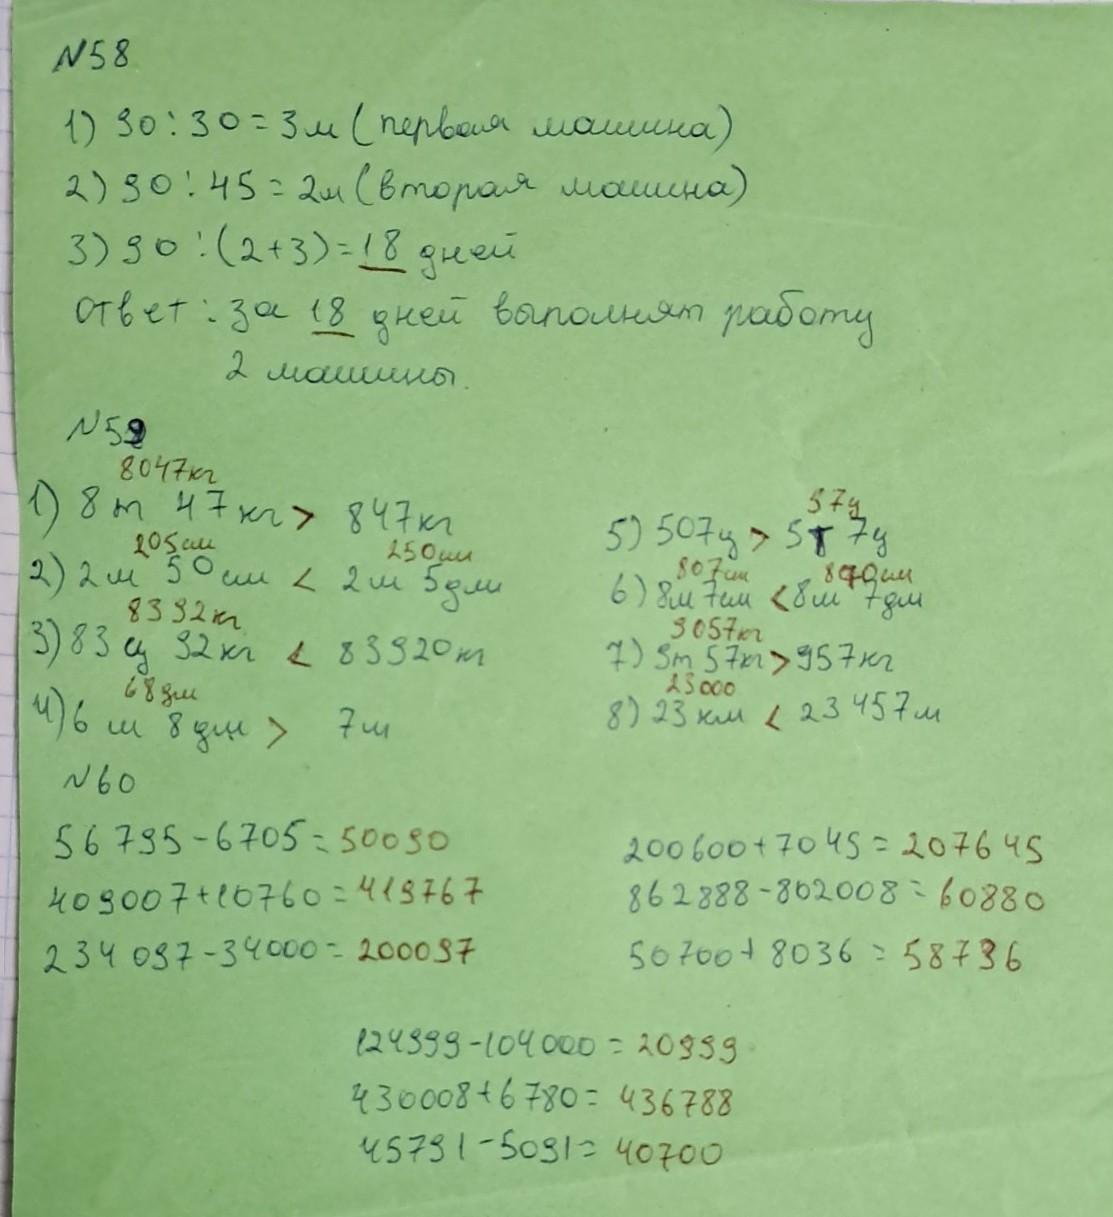 N58
1) 90:30=3м (первая машина)
2) 90:45=2м (вторая машина)
3) 90:(2+3)=18 дней
Ответ: за 18 дней выполнят работу
2 машины.
N59
8047кг
1) 8т 47кг > 847кг
205см 250см
2) 2м 50см < 2м 5дм
8392кг
3) 83ц 92кг < 83920кг
68дм
4) 6м 8дм > 7м
57ц
5) 507ц > 5т 7ц
807см 870см
6) 8м 7см < 8м 7дм
9057кг
7) 9т 57кг > 957кг
23000
8) 23км < 23457м
N60
56795-6705=50090
409007+10760=419767
234097-34000=200097
200600+7045=207645
862888-802008=60880
50700+8036=58736
124999-104000=20999
430008+6780=436788
45791-5091=40700